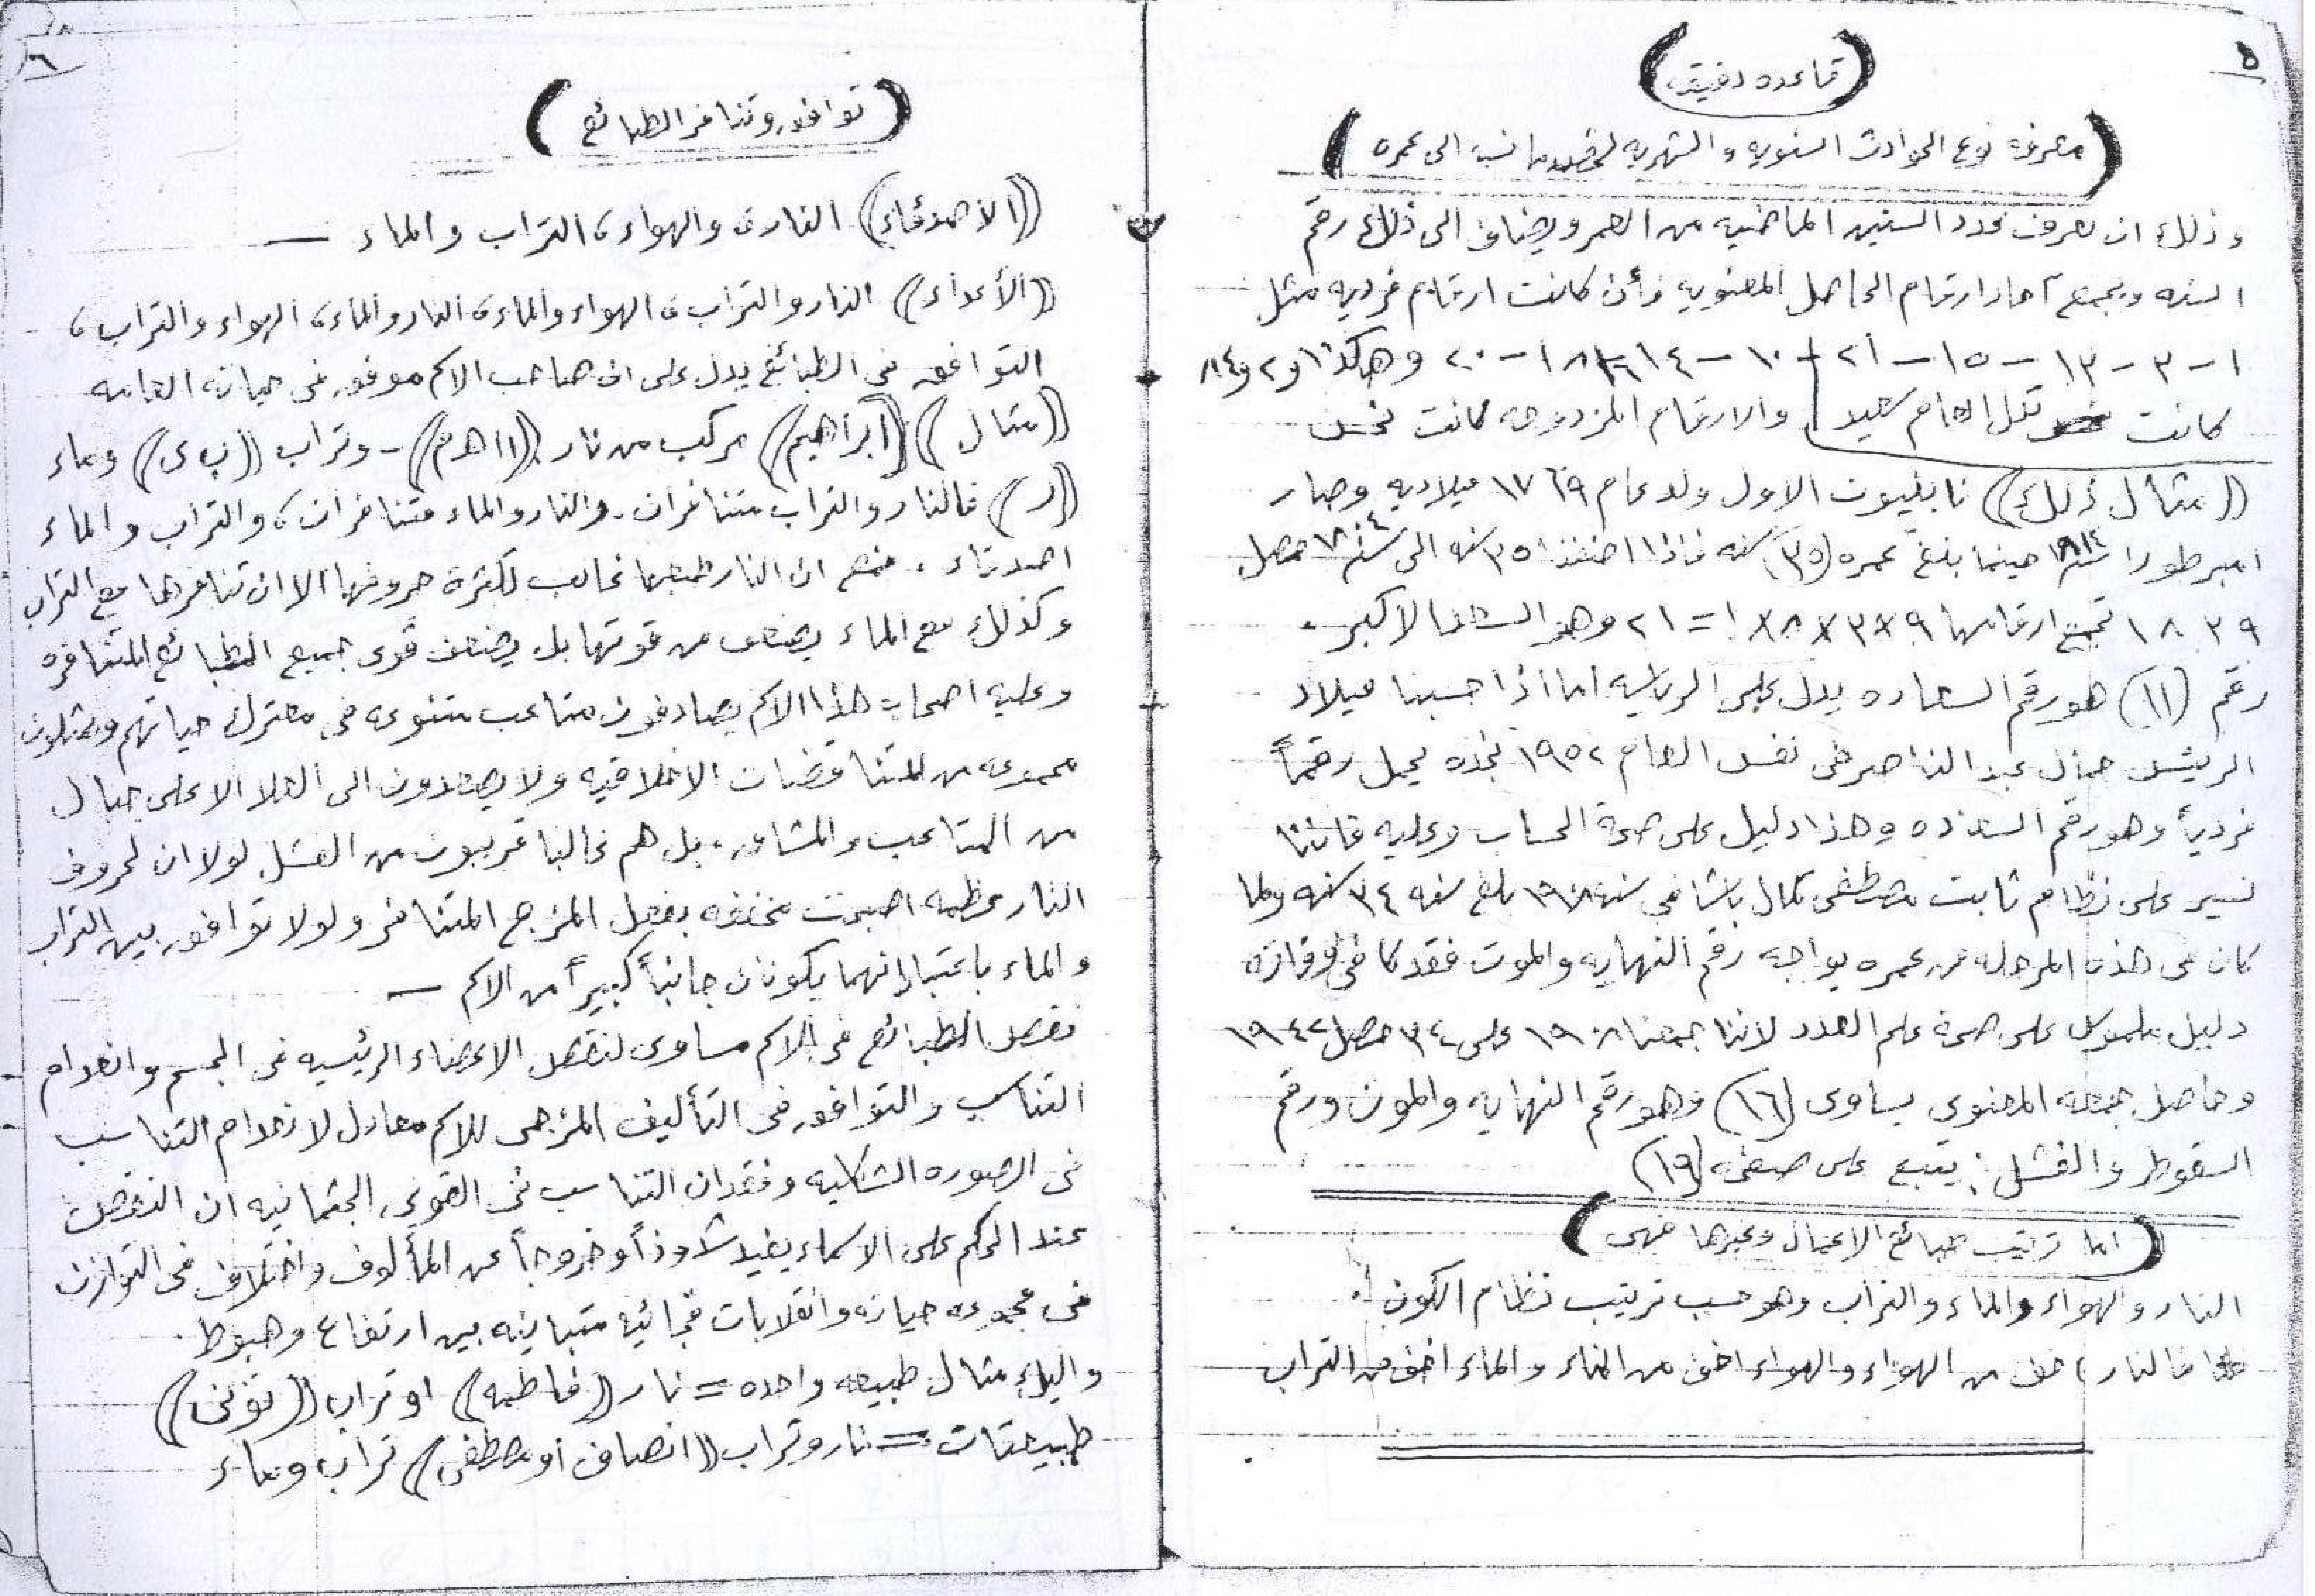 ٥
(قاعده دقيقه)
(معرفة نوع الحوادث السنويه والشهريه لشخص ما نسبه الى عمره)
وذلك ان تعرف عدد السنين الماضيه من العمر ويضاف الى ذلك رقم
السنه ويجمع آحاد ارقام الحاصل المعنويه فأن كانت ارقام فرديه مثل
١ - ٣ - ١٣ - ١٥ - ٢١ - ١٠ - ١٤ - ١٨ - ٢٠ وهكذا و٢ و٨٤
كانت تلك العام سعيد والارقام المزدوجه كانت نحس
((مثال ذلك)) نابليون الاول ولد عام ١٧٦٩ ميلاديه وصار
امبرطورا حينما بلغ عمره (٣٥) سنه فاذا اضفنا ٣٥ سنه الى سنة ١٨٠٤ حصل
١٨٣٩ تجمع ارقامها ٩×٣×٨×١ = ٢١ وهو السعد الاكبر.
رقم (١١) هو رقم السعاده يدل على الرياسه اما اذا حسبنا ميلاد
الريئس جمال عبد الناصر في نفس العام ١٩٥٢ نجده يحمل رقماً
فردياً وهو رقم السعاده وهذا دليل على صحة الحساب وعليه فاننا
نسير على نظام ثابت مصطفى كامل باشا في سنه ١٩٠٨ بلغ سنه ٣٤ سنه ولما
كان في هذه المرحله من عمره يواجه رقم النهايه والموت فقد كا في وفاته
دليل ملموس على صحة علم العدد لاننا جمعنا ١٩٠٨ على ٣٤ حصل ١٩٤٢
وحاصل جمعه المعنوي يساوى (١٦) وهو رقم النهايه والموت ورقم
السقوط والفشل: يتبع على صفحه (١٩)
(اما ترتيب طبائع الاعمال وغيرها فهى)
النار والهواء والماء والتراب وهو حسب ترتيب نظام الكون.
فالنار اخف من الهواء والهواء اخف من الماء والماء اخف من التراب
٦
(توافق وتنافر الطبائع)
((الأصدقاء)) النار، والهواء، التراب والماء —
((الأعداء)) النار والتراب، الهواء والماء، النار والماء، الهواء والتراب،
التوافق في الطبائع يدل على ان صاحب الاسم موفق في حياته العامه
((مثال)) ((ابراهيم)) مركب من نار ((ا ا ه م)) - وتراب ((ب ى)) وماء
((ر)) فالنار والتراب متنافران. والنار والماء متنافران، والتراب والماء
اصدقاء. فمع ان النار طبعها غالب لكثرة حروفها الا ان تنافرها مع التراب
وكذلك مع الماء يضعف من قوتها بل يضعف قوى جميع الطبائع المتنافره
وعليه اصحاب هذا الاسم يصادفون متاعب متنوعه في معترك حياتهم ويمثلون
مجموعه من المتناقضات الاخلاقيه ولا يصعدون الى العلا الا على جبال
من المتاعب والمشاق. بل هم غالبا قريبون من الفشل لولا ان لحروف
النار عظمه اصبحت مخففه بفعل المزج المتنافر ولولا توافق بين التراب
والماء باعتبار انهما يكونان جانباً كبيراً من الاسم —
نقص الطبائع في الاسم مساوى لنقص الاعضاء الرئيسيه في الجسم وانعدام
التناسب والتوافق في التأليف المزجى للاسم معادل لانعدام التناسب
في الصوره الشكليه وفقدان التناسب في القوى الجثمانيه ان النقص
عند الحكم على الاسماء يفيد شذوذاً وخروجاً عن المألوف واختلاف في التوازن
في مجموعه حياته وانقلابات فجائيه متباينه بين ارتفاع وهبوط.
واليك مثال طبيعه واحده = نار ((فاطمه)) او تراب ((توني))
طبيعتان = نار وتراب ((انصاف او مصطفى)) تراب وماء